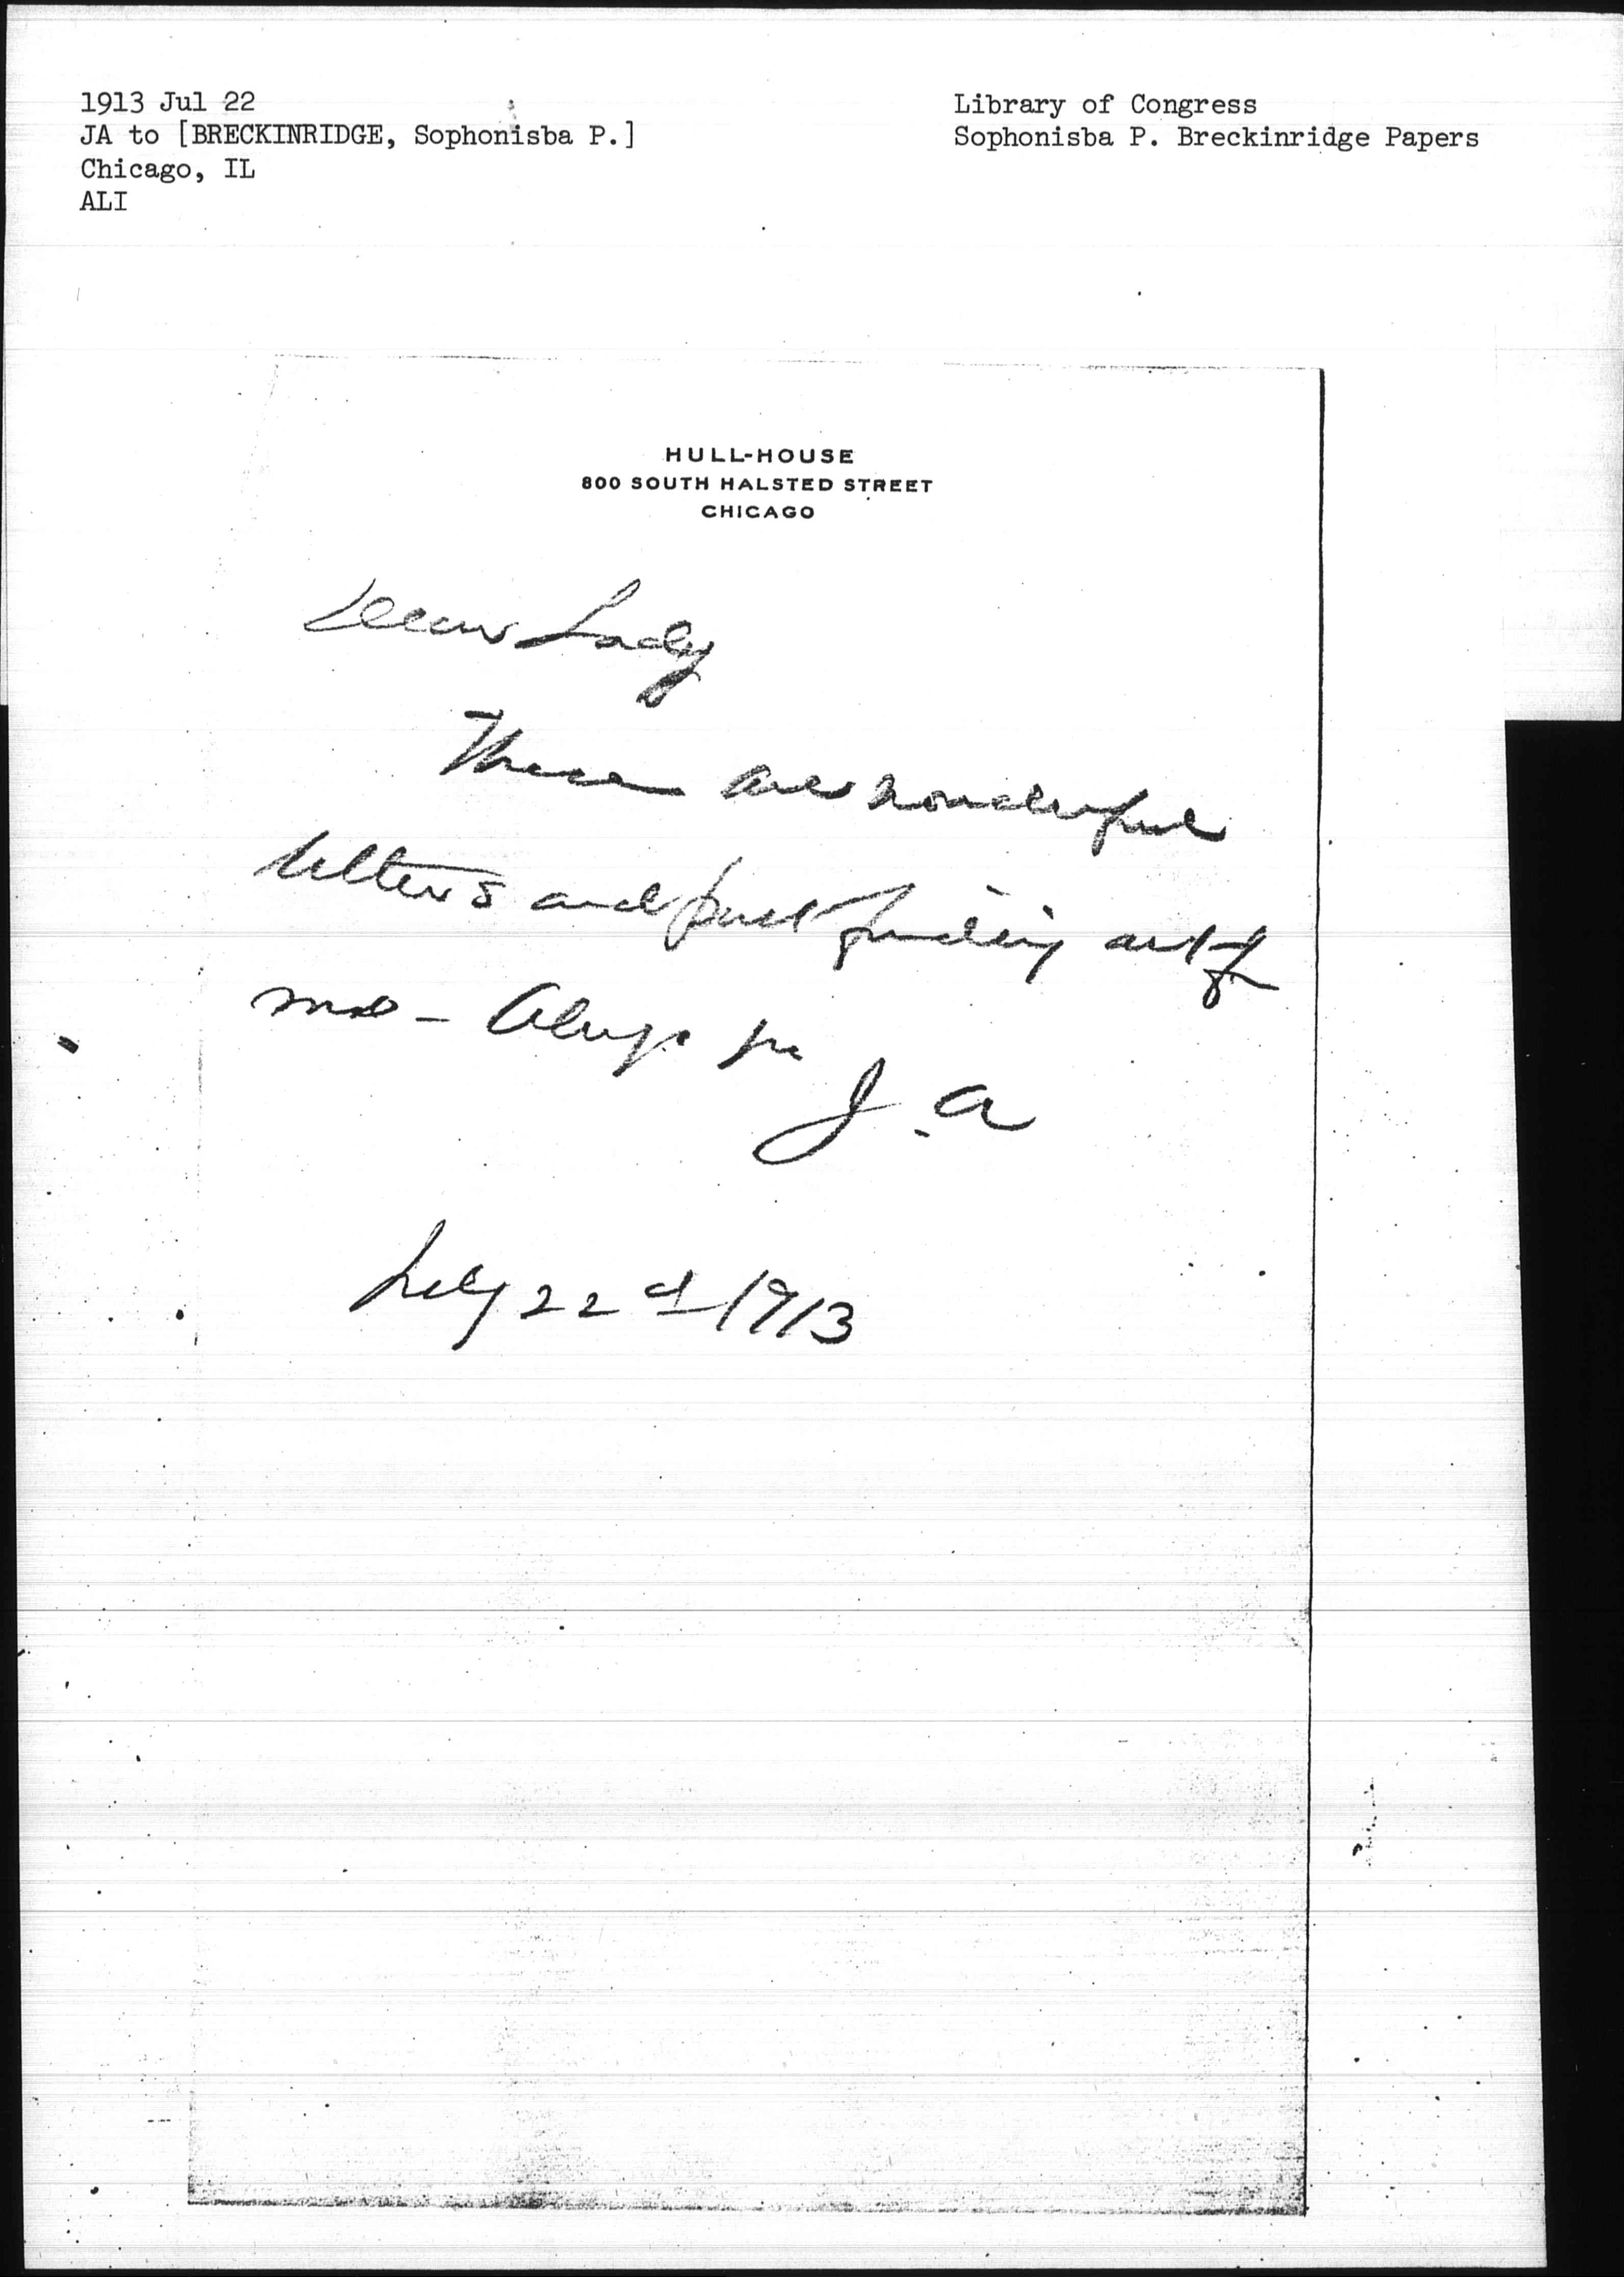 1913 Jul 22
JA to [BRECKINRIDGE, Sophonisba P.]
Chicago, IL
ALI
Library of Congress
Sophonisba P. Breckinridge Papers
HULL-HOUSE
800 SOUTH HALSTED STREET
CHICAGO
Dear Lady
These are wonderful
letters and out of
me - Always yrs
J. A
July 22d 1913